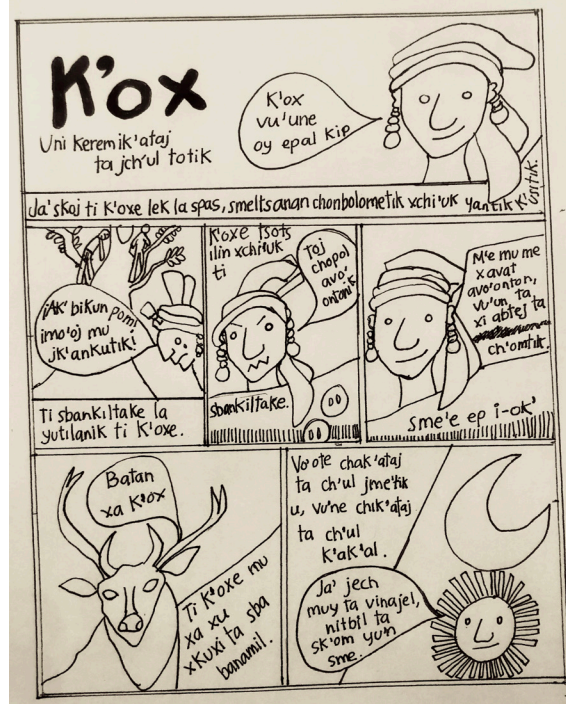 K'ox
Uni kerem ik'ataj
ta jch'ul totik
K'ox
vu'une
oy epal kip
Ja'skoj ti K'oxe lek la spas, smeltsanan chonbolometik xchi'uk yantik k'usitik.
¡AK' bikun pom!
imo'oj mu
jk'ankutik!
Ti sbankiltake la
yutilanik ti K'oxe.
K'oxe tsots
ilin xchi'uk
ti
Toj
chopol
avo'
ontonik
sbankiltake.
M'e mu me
xavat
avo'onton,
vu'un ta
xi abtej ta
ch'omtik.
sme'e ep i-ok'
Batan
xa K'ox
Ti K'oxe mu
xa xu
xkuxi ta sba
banamil.
Vo'ote chak'ataj
ta ch'ul jme'tik
u, vu'ne chik'ataj
ta ch'ul
k'ak'al.
Ja' jech
muy ta vinajel,
nitbil ta
sk'om yu'n
sme.